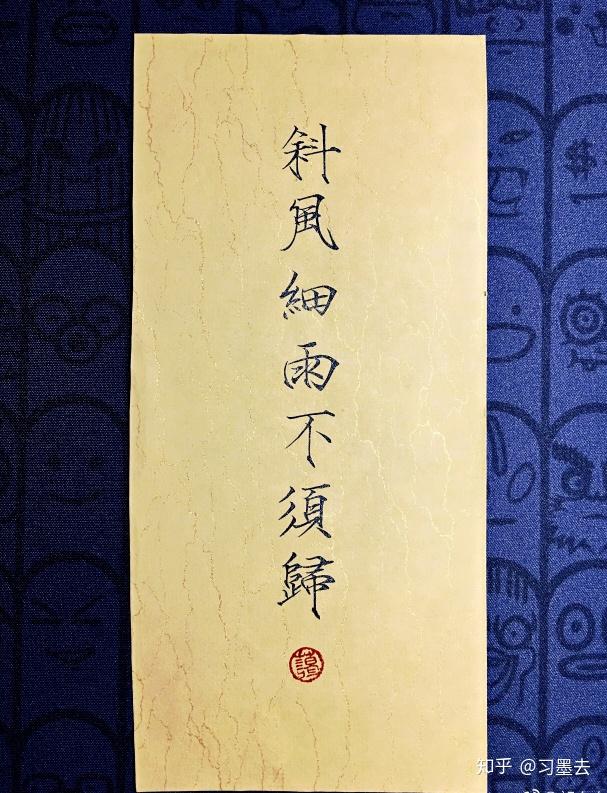 斜風細雨不須歸
知乎 @习墨去